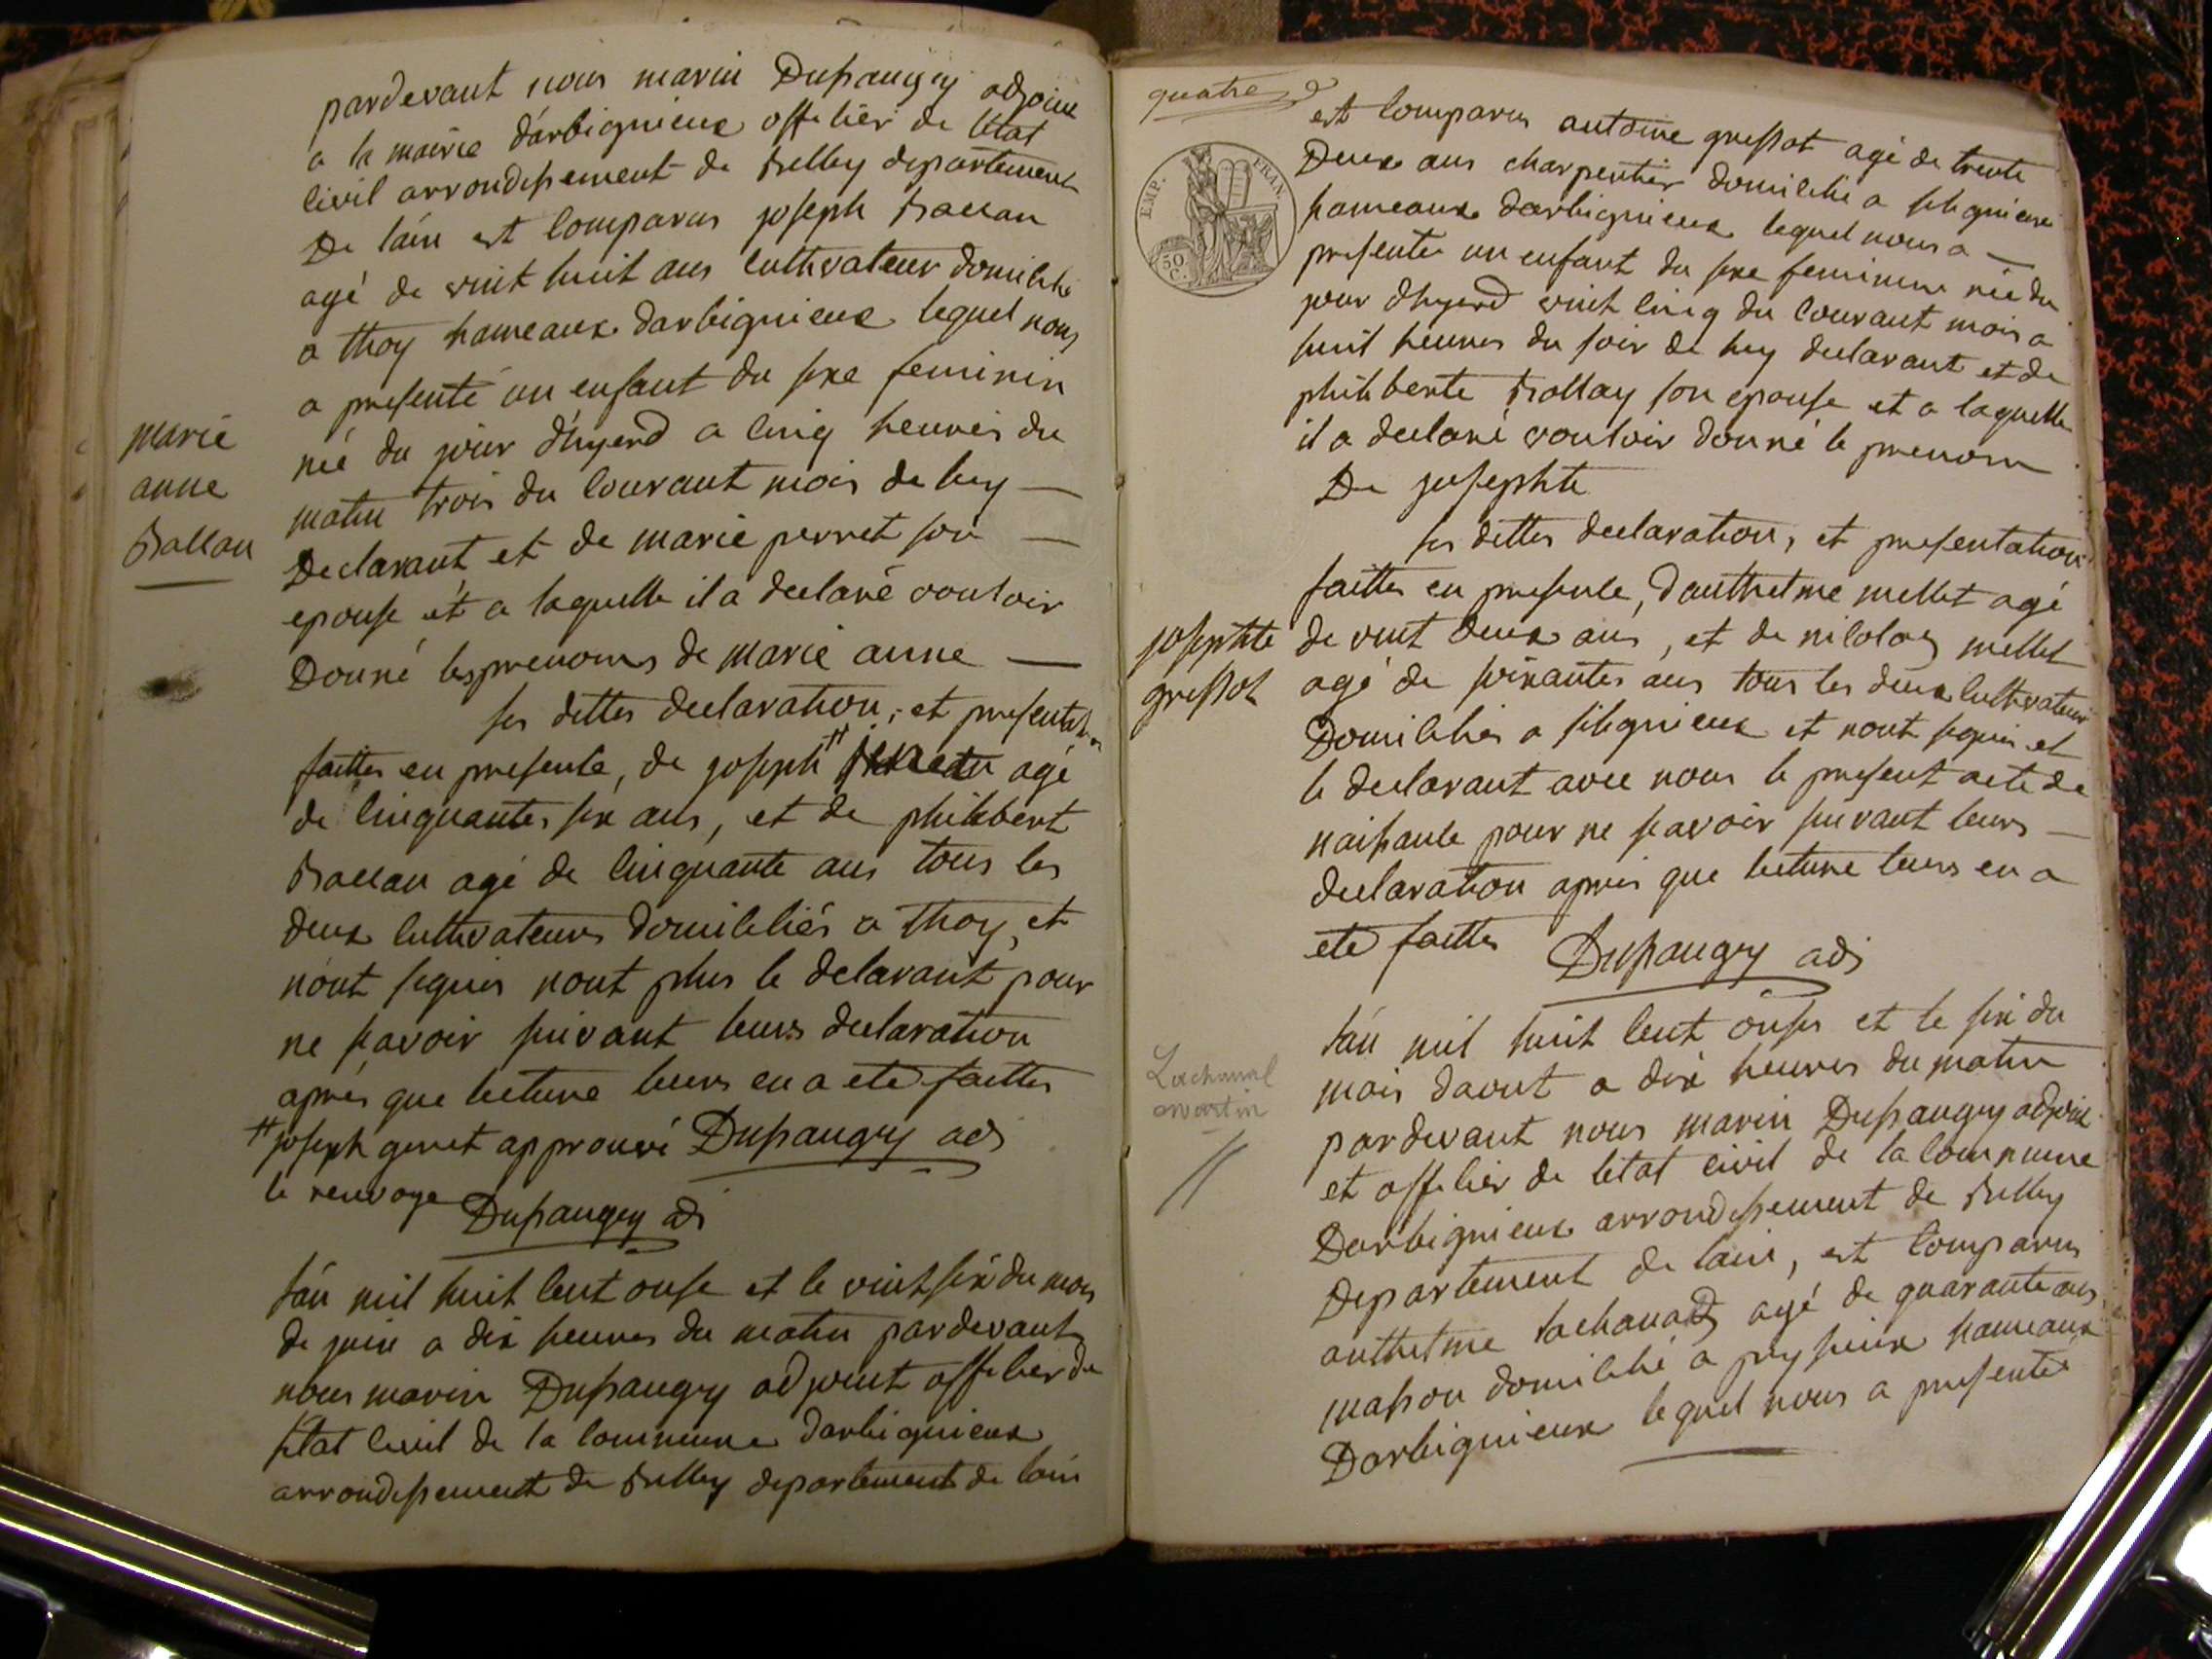 pardevant nous marin Dupaugey adjoint
a la mairie d'arbignieux officier de l'état
civil arrondissement de belley departement
De l'ain est comparus joseph Ballan
agé de vint huit ans cultivateur domicilié
a thoy hameaux darbignieux lequel nous
a presenté un enfant du sexe feminin
né du jour d'hyerd a cinq heures du
matin trois du courant mois de luy —
Declarant et de marie perret son —
epouse et a laquelle il a declaré vouloir
Donné les prenoms de marie anne —
marie
anne
Ballan
ses dittes declaration, et presentation
faittes en presence, de joseph # agé
de cinquantes six ans, et de philibert
Ballan agé de cinquante ans tous les
deux cultivateurs domiciliés a thoy, et
nont signés nont plus le delarant pour
ne savoir suivant leurs declaration
après que lecture leurs en a eté faittes
# joseph genet approuvé Dupaugey adj
le renvoye Dupaugey adj
L'an mil huit cent onse et le vint six du mois
de juin a dix heures du matin pardevant
nous marin Dupaugey adjoint officier de
létat civil de la commune darbignieux
arrondissement de belley departement de lain
quatre
EMP. FRAN.
50
C.
est comparus antoine gressot agé de trente
Deux ans charpentier domicilié a silignieux
hameaux darbignieux lequel nous a —
presenté un enfant du sexe feminin née du
jour dhyerd vint cinq du courant mois a
huit heures du soir de luy declarant et de
philiberte Ballay son epouse et a laquelle
il a declaré vouloir donné le prenom
De josephte
ses dittes declaration, et presentation
faittes en presence, danthelme mellet agé
de vint deux ans, et de nicolas mellet
agé de soixantes ans tous les deux cultivateurs
Domiciliés a silignieux et nont signés et
le declarant avec nous le present acte de
naissance pour ne savoir suivant leurs —
declaration après que lecture leurs en a
eté faittes Dupaugey adj
josephte
gressot
L'an mil huit cent onses et le six du
mois daout a dix heures du matin
pardevant nous marin Dupaugey adjoint
et officier de létat civil de la commune
Darbignieux arrondissement de belley
Departement de lain, est comparus
anthelme Lachanal agé de quarante ans
masson domicilié a peyzieux hameaux
Darbignieux lequel nous a presenté
Lachanal
martin